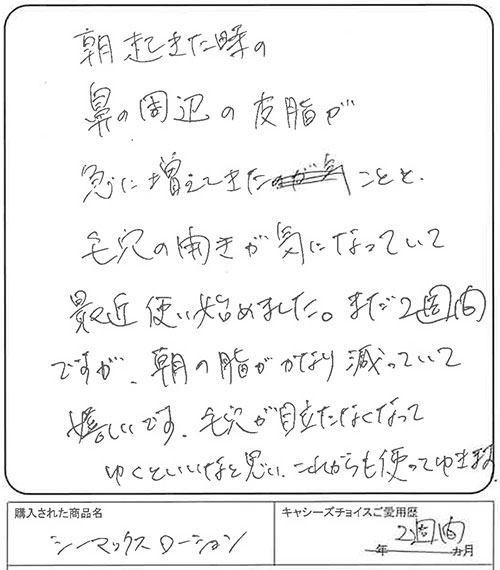 朝起きた時の
鼻の周辺の皮脂が
急に増えてきたのが気ことと、
毛穴の開きが気になっていて
最近使い始めました。まだ2週間
ですが、朝の脂がかなり減っていて
嬉しいです。毛穴が目立たなくなって
ゆくといいなと思い、これからも使ってゆきます。
購入された商品名
シーマックスローション
キャシーズチョイスご愛用歴
2週間
年 カ月